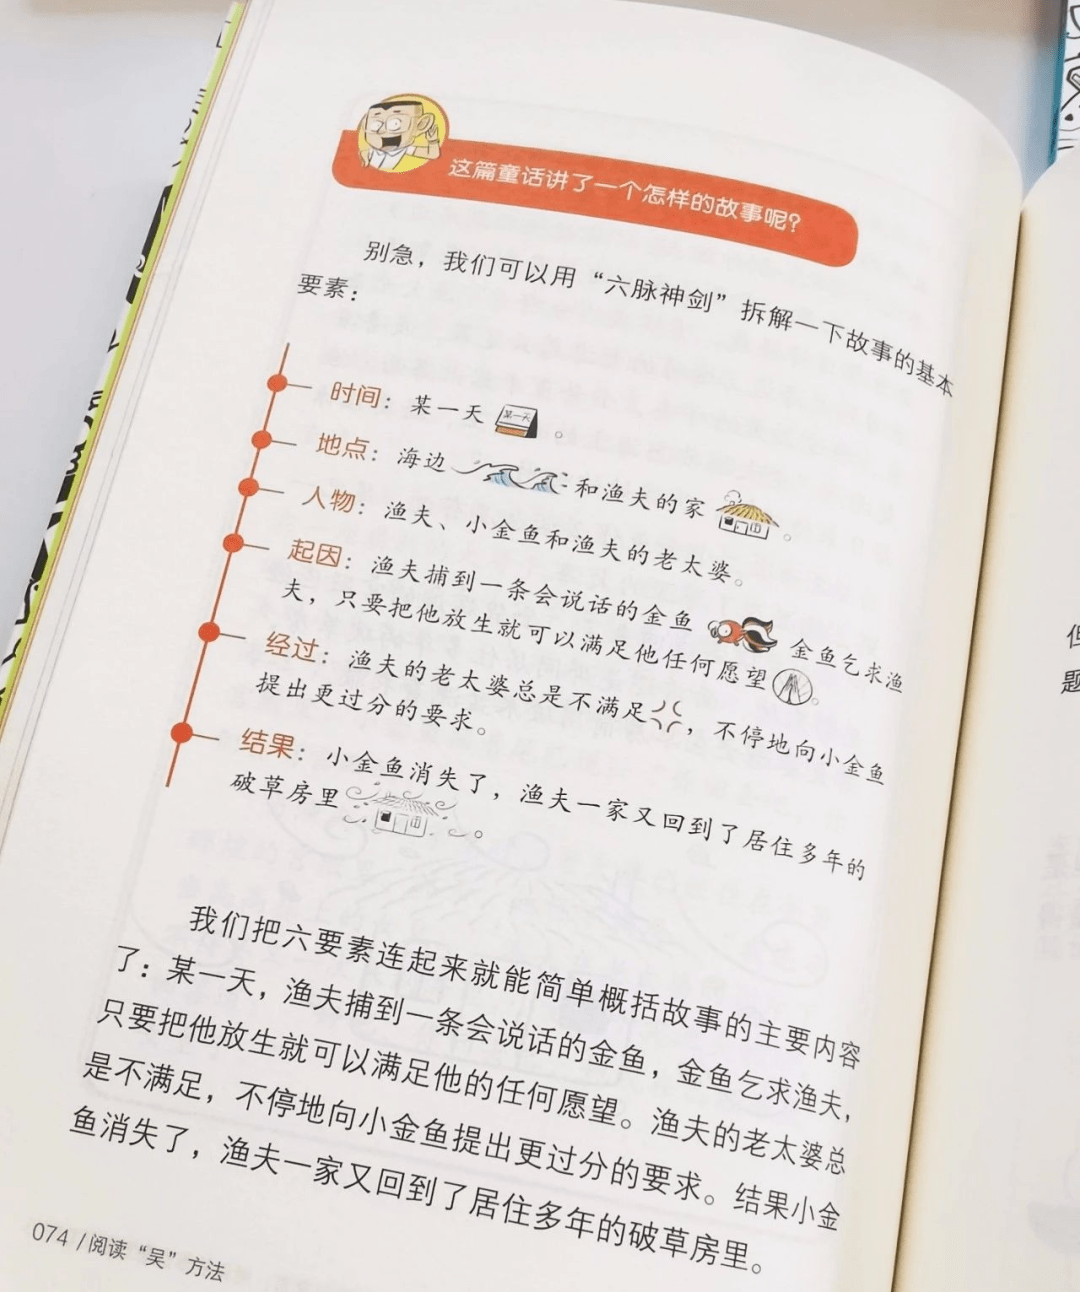 这篇童话讲了一个怎样的故事呢?
别急，我们可以用“六脉神剑”拆解一下故事的基本
要素：
时间：某一天 某一天 。
地点：海边 和渔夫的家 。
人物：渔夫、小金鱼和渔夫的老太婆。
起因：渔夫捕到一条会说话的金鱼 金鱼乞求渔
夫，只要把他放生就可以满足他任何愿望 。
经过：渔夫的老太婆总是不满足 ，不停地向小金鱼
提出更过分的要求。
结果：小金鱼消失了，渔夫一家又回到了居住多年的
破草房里 。
我们把六要素连起来就能简单概括故事的主要内容
了：某一天，渔夫捕到一条会说话的金鱼，金鱼乞求渔夫，
只要把他放生就可以满足他的任何愿望。渔夫的老太婆总
是不满足，不停地向小金鱼提出更过分的要求。结果小金
鱼消失了，渔夫一家又回到了居住多年的破草房里。
074 / 阅读“吴”方法
题